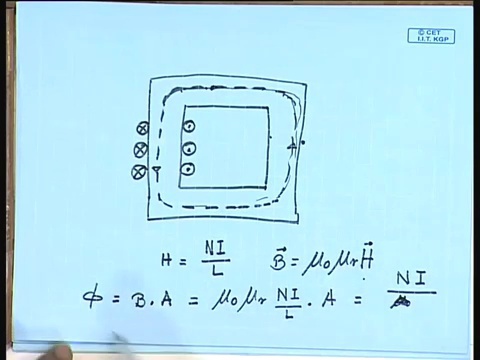 © CET
I.I.T. KGP
A
H = NI/L B⃗ = μ₀μᵣH⃗
ϕ = B.A = μ₀μᵣ NI/L . A = NI/